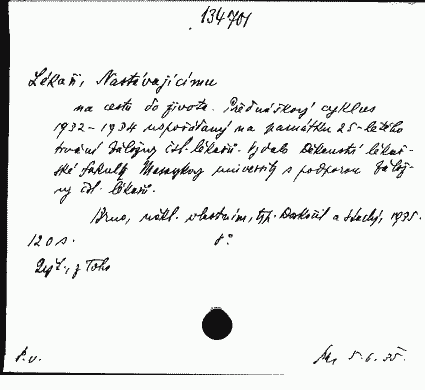 134701
Lékaři, Nastávajícímu
na cestu do života. Přednáškový cyklus
1932-1934 uspořádaný na památku 25-letého
trvání Zálohy čsl. lékařů. Vydalo Děkanství lékař-
ské fakulty Masarykovy university s podporou Zálož-
ny čsl. lékařů.
Brno, nákl. vlastním, typ. a Šlechý, 1935.
120 s. 8°
z toho
P.v. 5.6.35.